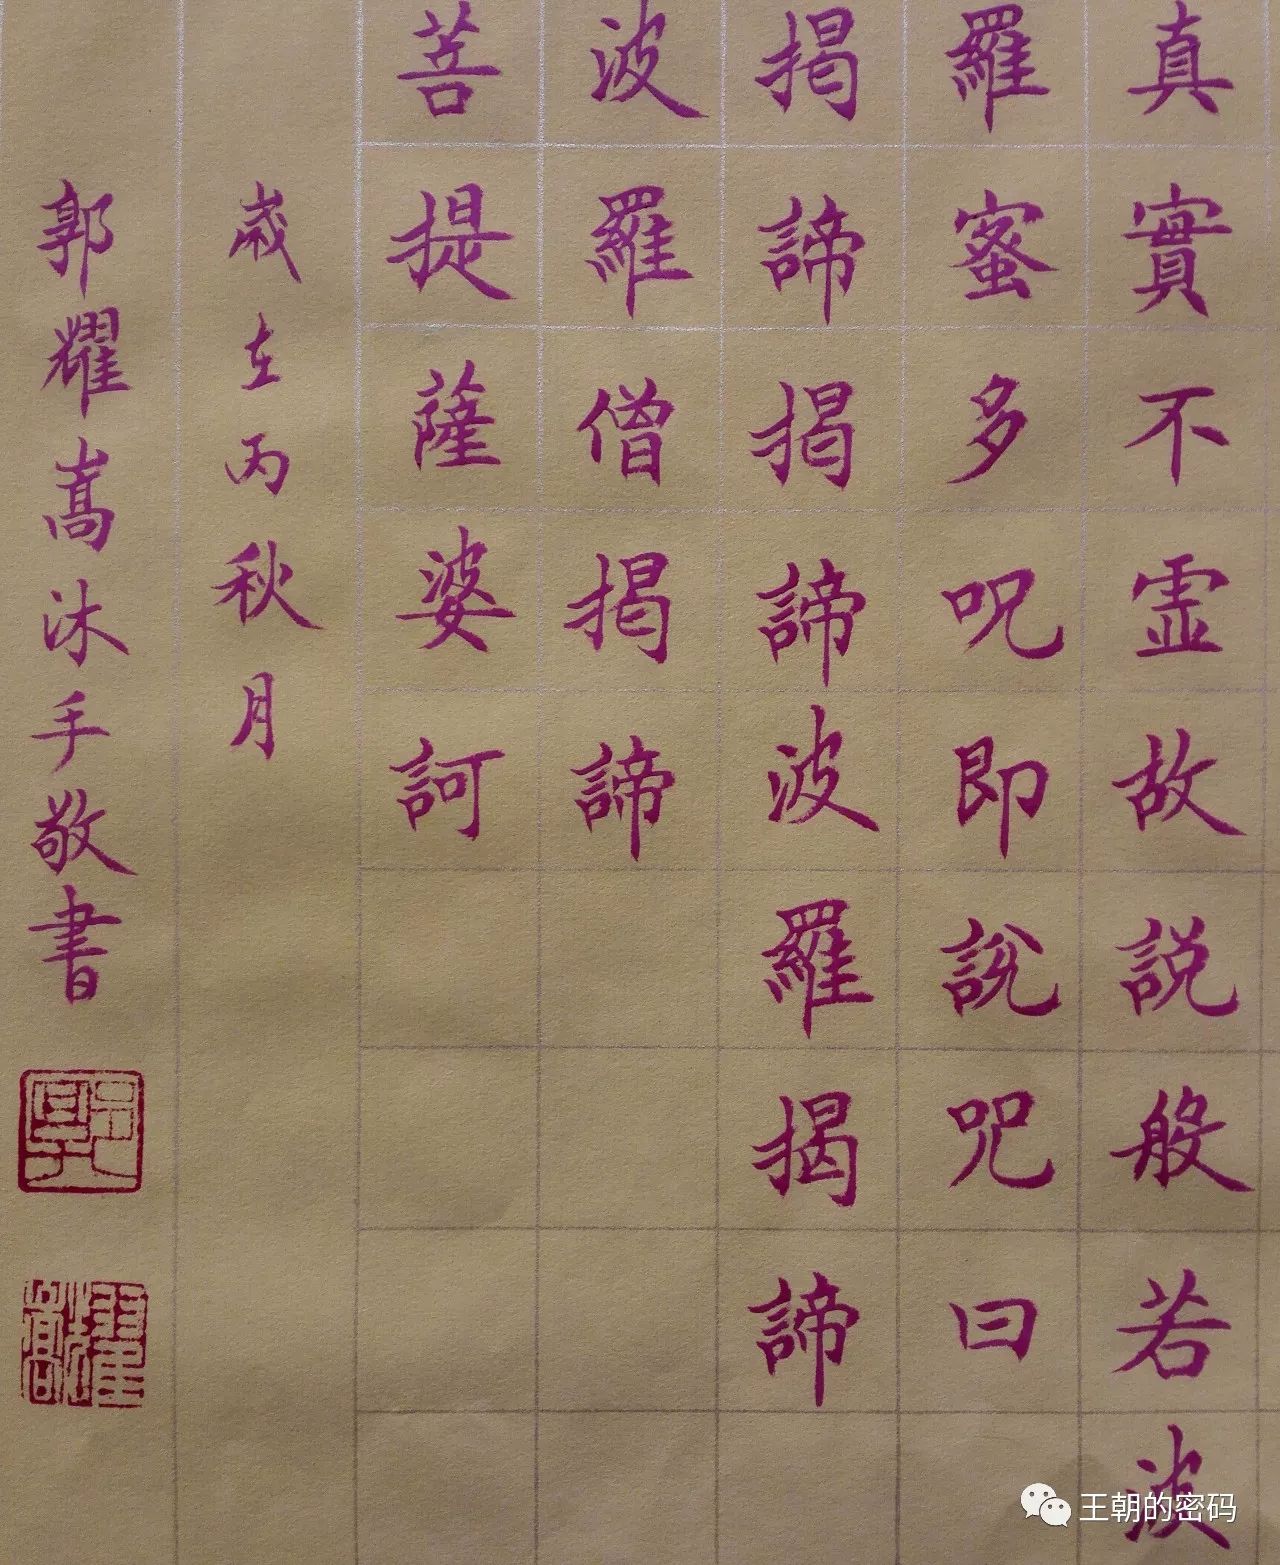 真實不虛故説般若波
羅蜜多呪即説咒曰
揭諦揭諦波羅揭諦
波羅僧揭諦
菩提薩婆訶
歲在丙秋月
郭耀嵩沐手敬書
郭
耀嵩
王朝的密码